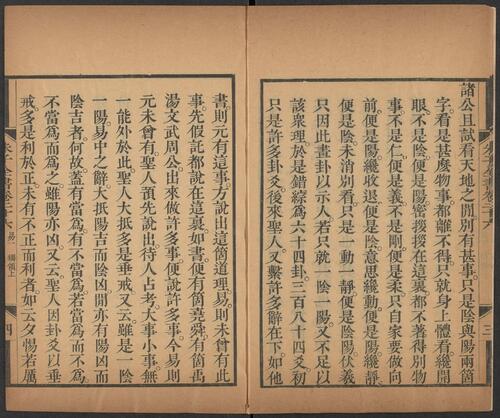 諸公且試看天地之間別有甚事只是陰與陽兩箇
字看是甚麼物事都離不得只就身上體看纔開
眼不是陰便是陽密拶拶在這裏都不著得別物
事不是仁便是義不是剛便是柔只自家要做向
前便是陽纔收退便是陰意思纔動便是陽纔靜
便是陰未消別看只是一動一靜便是陰陽伏羲
只因此畫卦以示人若只就一陰一陽又不足以
該衆理於是錯綜爲六十四卦三百八十四爻初
只是許多卦爻後來聖人又繫許多辭在下如他
三
書則元有這事方說出這箇道理易則未曾有此
事先假託都說在這裏如書便有箇堯舜有箇禹
湯文武周公出來做許多事便說許多事今易則
元未曾有聖人預先說出待人占考大事小事無
一能外於此聖人大抵多是垂戒又云雖是一陰
一陽易中之辭大抵陽吉而陰凶間亦有陽凶而
陰吉者何故蓋有當爲有不當爲若當爲而不爲
不當爲而爲之雖陽亦凶又云聖人因卦爻以垂
戒多是利於正未有不正而利者如云夕惕若厲
朱子全書卷二十六 易 綱領上 四